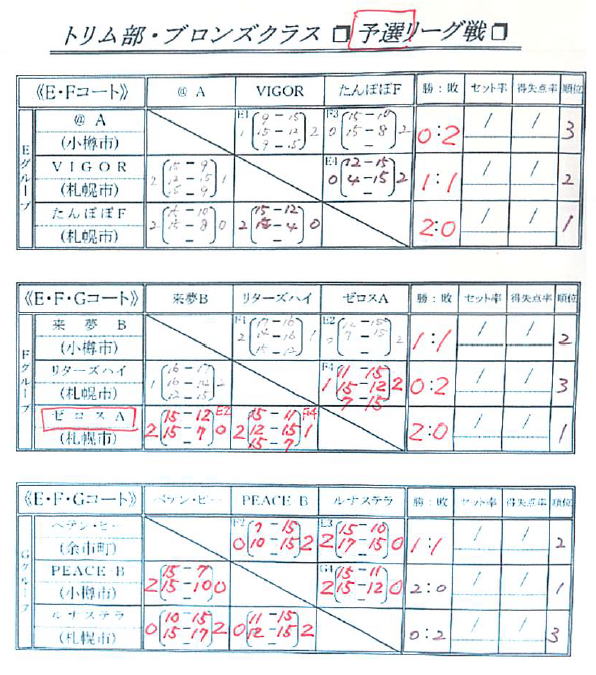 トリム部・ブロンズクラス 予選リーグ戦
《E・Fコート》 @ A VIGOR たんぽぽF 勝：敗 セット率 得失点率 順位
Eグループ
@ A (小樽市) E1 1 9-15 15-12 9-15 2 F3 0 15-8 2 0:2 / / 3
VIGOR (札幌市) 2 15-9 15-9 1 E4 0 12-15 4-15 2 1:1 / / 2
たんぽぽF (札幌市) 2 15-8 0 2 15-12 15-4 0 2:0 / / 1
《E・F・Gコート》 来夢B リターズハイ ゼロスA 勝：敗 セット率 得失点率 順位
Fグループ
来夢B (小樽市) F1 2 15-12 1 E2 0 2 1:1 / / 2
リターズハイ (札幌市) 1 12-15 2 F4 1 11-15 15-12 7-15 2 0:2 / / 3
ゼロスA (札幌市) 2 15-12 15-7 0 E2 2 15-11 12-15 15-7 1 F4 2:0 / / 1
《E・F・Gコート》 ペテン・ビー PEACE B ルナステラ 勝：敗 セット率 得失点率 順位
Gグループ
ペテン・ビー (余市町) F2 0 7-15 10-15 2 E3 2 15-10 17-15 0 1:1 / / 2
PEACE B (小樽市) 2 15-7 15-10 0 G1 2 15-11 15-12 0 2:0 / / 1
ルナステラ (札幌市) 0 10-15 15-17 2 0 11-15 12-15 2 0:2 / / 3